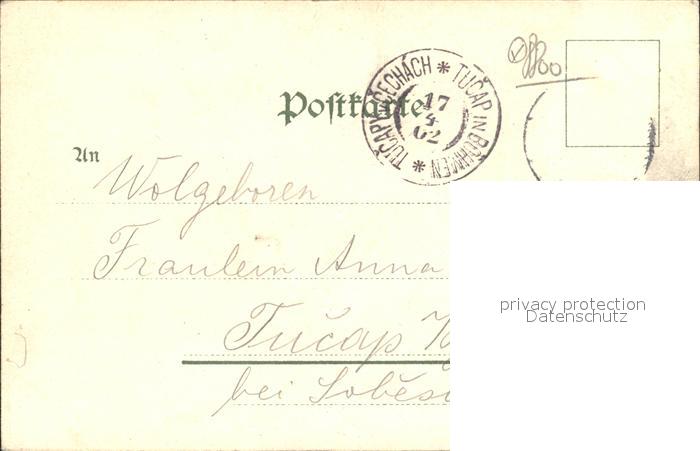 Postkarte
TUČAP V ČECHÁCH * TUČAP IN BÖHMEN *
17
4
02
An
Wolgeboren
Fräulein Anna
Tučap
bei Soběs
privacy protection
Datenschutz